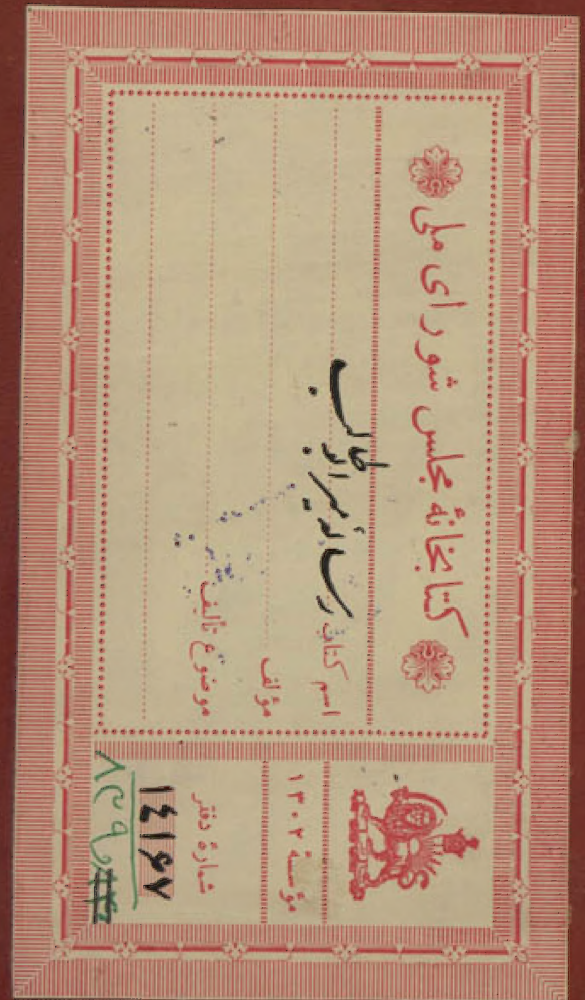 کتابخانهٔ مجلس شورای ملی
اسم کتاب رساله میر ابوطالب
مؤلف
موضوع تألیف
مؤسسهٔ ۱۳۰۲
شمارهٔ دفتر
۱۴۱۶۷